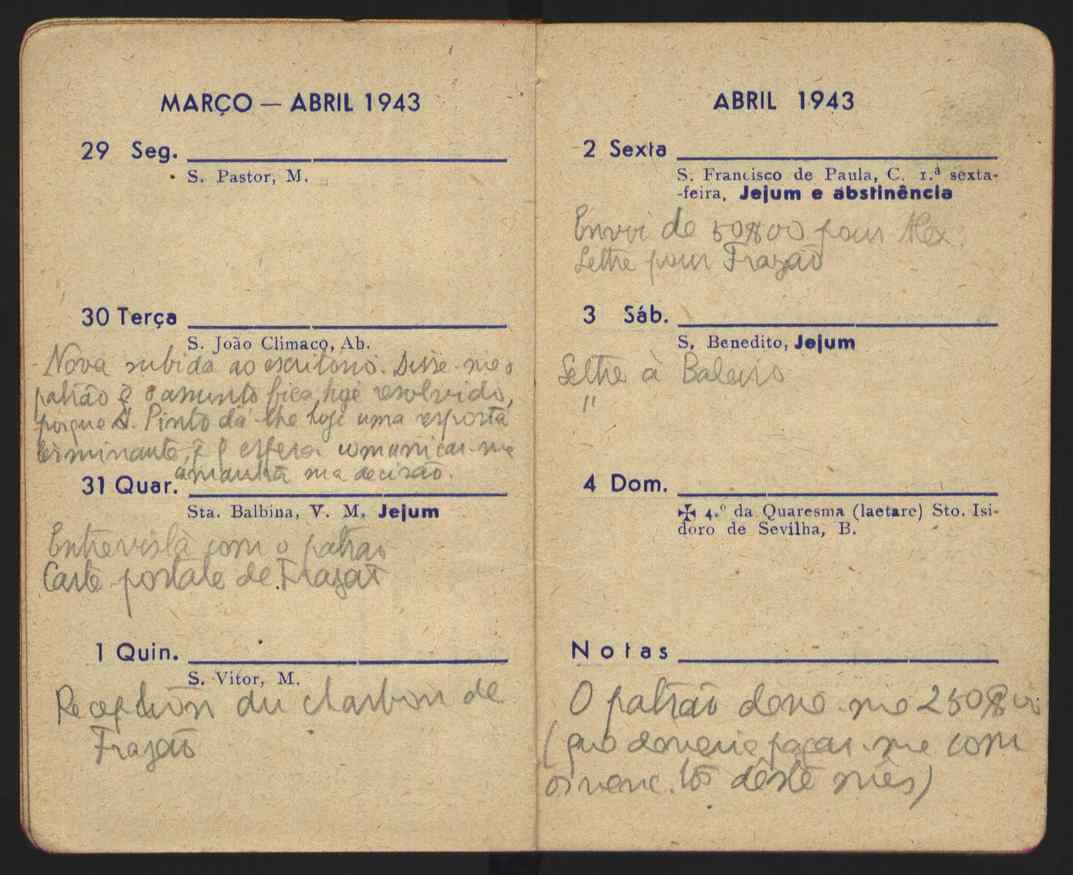 MARÇO — ABRIL 1943
29 Seg.
S. Pastor, M.
30 Terça
S. João Climaco, Ab.
Nova subida ao escritório. Disse-me o
patrão q̃ o assunto fica hoje resolvido,
porque S. Pinto dá-lhe hoje uma resposta
terminante, e q̃ espera comunicar-me
amanhã sua decisão.
31 Quar.
Sta. Balbina, V. M. Jejum
Entrevista com o patrão
Carte postale de Frazão
1 Quin.
S. Vitor, M.
Reception du charbon de
Frazão
ABRIL 1943
2 Sexta
S. Francisco de Paula, C. 1.ª sexta-
-feira, Jejum e abstinência
Envoi de 50$00 pour Alex.
Lettre pour Frazão
3 Sáb.
S. Benedito, Jejum
Lettre à Baleiro
"
4 Dom.
✠ 4.º da Quaresma (laetare) Sto. Isi-
doro de Sevilha, B.
Notas
O patrão deve-me 250$00
(que deveria pagar-me com
os venc.tos dêste mês)